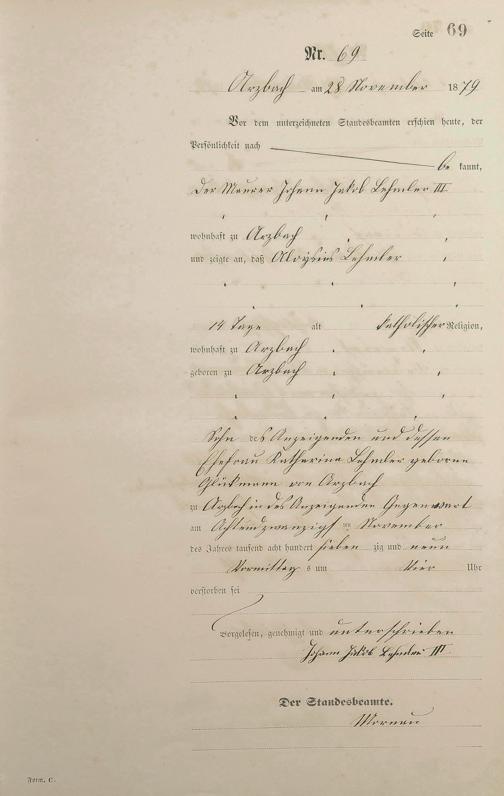 Seite 69
Nr. 69
Arzbach am 28 November 1879
Vor dem unterzeichneten Standesbeamten erschien heute, der
Persönlichkeit nach
be kannt,
der Maurer Johann Jakob Lehmler III
wohnhaft zu Arzbach
und zeigte an, daß Aloysius Lehmler
14 Tage alt katholischer Religion,
wohnhaft zu Arzbach
geboren zu Arzbach
Sohn des Anzeigenden und dessen
Ehefrau Katharina Lehmler geborene
Glükmann von Arzbach
zu Arzbach in des Anzeigenden Gegenwart
am Achtundzwanzigsten November
des Jahres tausend acht hundert sieben zig und neun
Vormittags um Vier Uhr
verstorben sei
Vorgelesen, genehmigt und unterschrieben
Johann Jakob Lehmler III
Der Standesbeamte.
Form. C.